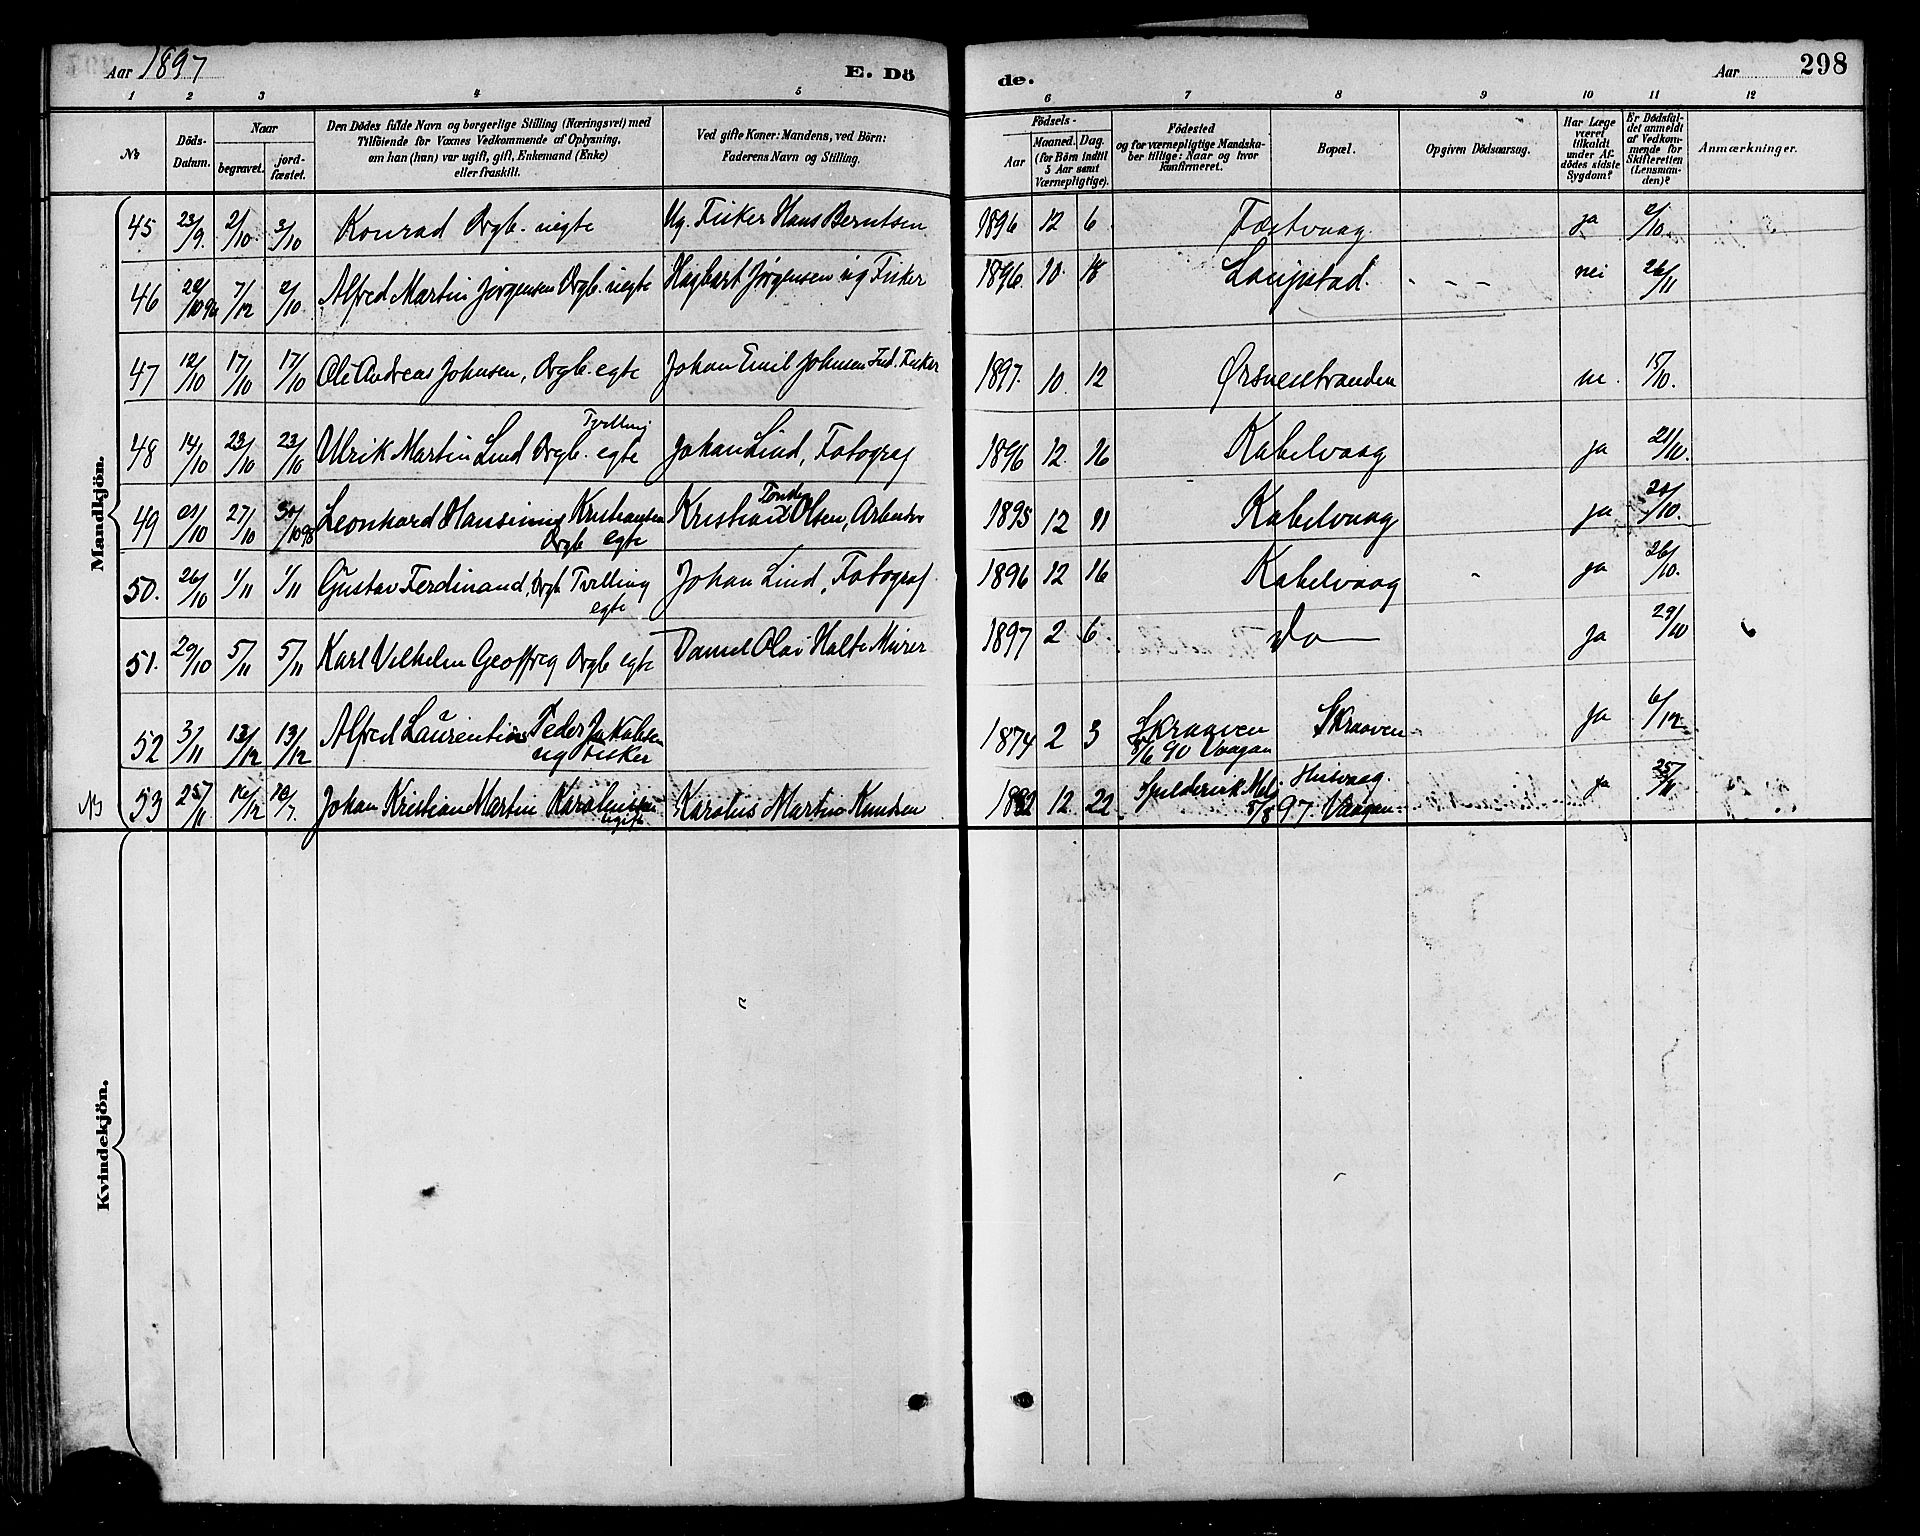 Aar 1897
E. Dö
de.
Aar
298
1 2 3 4 5 6 7 8 9 10 11 12
No
Döds-
Datum.
Naar
begravet.
jord-
fæstet.
Den Dödes fulde Navn og borgerlige Stilling (Næringsvei) med
Tilföiende för Voxnes Vedkommende af Oplysning,
om han (hun) var ugift, gift, Enkemand (Enke)
eller fraskilt.
Ved gifte Koner: Mandens, ved Börn:
Faderens Navn og Stilling.
Födsels-
Aar
Maaned.
Dag.
(for Börn indtil
5 Aar samt
Værnepligtige).
Födested
og for værnepligtige Mandska-
ber tillige: Naar og hvor
konfirmeret.
Bopæl.
Opgiven Dödsaarsag.
Har Læge
været
tilkaldt
under Af-
dödes sidste
Sygdom?
Er Dödsfal-
det anmeldt
af Vedkom-
mende for
Skifteretten
(Lensman-
den)?
Anmærkninger.
Mandkjön.
45 23/9. 2/10. 3/10 Konrad Drgb. uegte Ug. Fisker Hans Berntsen 1896 12 6 Fæstvaag ja 2/10.
46 7/12 2/10 Alfred Martin Jørgensen Drgb. uegte Hagbart Jørgensen ug Fisker 1896 10. 18 Laupstad. - - - nei 26/11
47 12/10 17/10 17/10 Ole Andreas Johnsen, Drgb. egte Johan Emil Johnsen Ind. Fisker 1897. 10 12 Ørsnesstranden 15/10.
Tvilling
48 14/10 23/10 23/10 Ulrik Martin Lind Drgb. egte Johan Lind, Fotograf 1896 12. 16 Kabelvaag ja 21/10.
49 21/10 27/10 30/10 98 Leonhard Hansinius Kristiansen Kristian Olsen, Arbeider 1895 12 11 Kabelvaag ja 21/10.
Drgb egte
50. 26/10 1/11 1/11 Gustav Ferdinand, Drgb Tvilling Johan Lind, Fotograf 1896 12 16 Kabelvaag - ja 26/10.
egte
51. 29/10 5/11 5/11 Karl Vilhelm Drgb egte Daniel Olai Holte Murer 1897 2 6 Do ja 29/10
52 3/11 13/12 13/12 Alfred Laurentius Peder Jakobsen 1874 2 3 Skraaven Skraaven ja 6/12.
ug Fisker 5/6 90 Vaagan
NB 53 25/11 16/12 Johan Kristian Martin Karolius Martin Knudsen 1882 12. 22 ja 25/11
ugift 97. Vaagan
Kvindekjön.